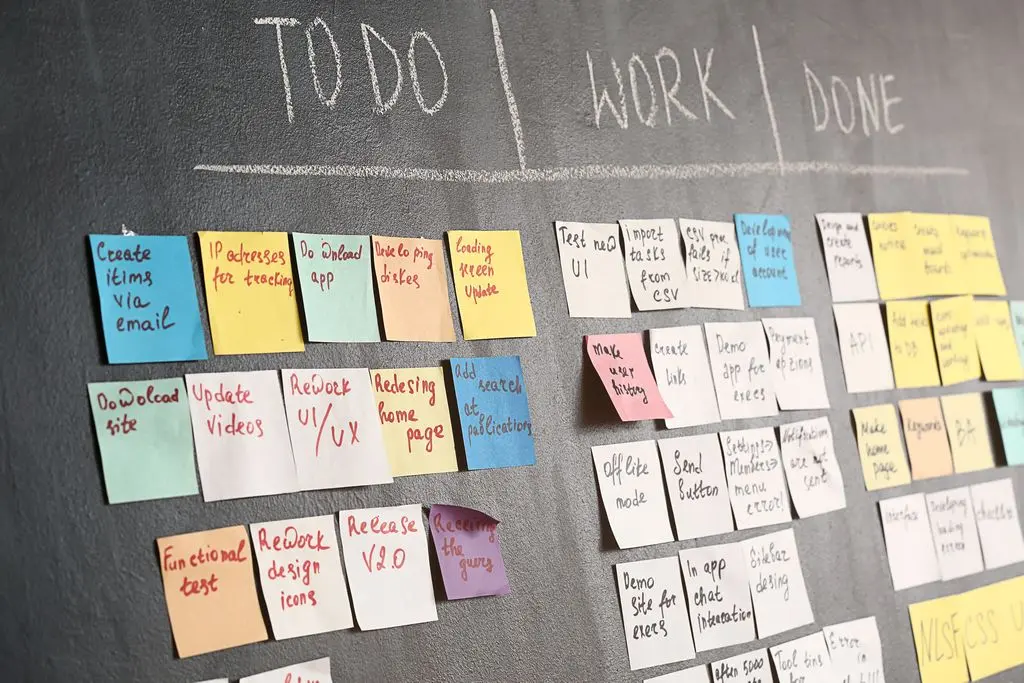 TODO
WORK
DONE
Create
itims
via
email
IP adresses
for tracking
DoWnload
app
Develo ping
diskes
Loading
screen
Update
DoWnload
site
Update
Videos
ReWork
UI/UX
Redesing
home
page
Add
search
at
publications
Functional
test
ReWork
design
icons
Release
V2.0
the
query
Test new
UI
Import
tasks
from
CSV
CSV
fails if
Development
of user
account
Make
user
history
Create
links
Demo
app for
execs
Payment
options
Offlite
mode
Send
button
Settings>
Members>
menu
error!
Notifications
are not
sent
Demo
site for
exers
In app
chat
Sidebar
desing
often 5000
Tool tins
Error in
Design and
create
reports
API
to DB
Make
home
page
Keywords
BA
Interface
Developing
loading
screen
checklist
NLSF
CSS